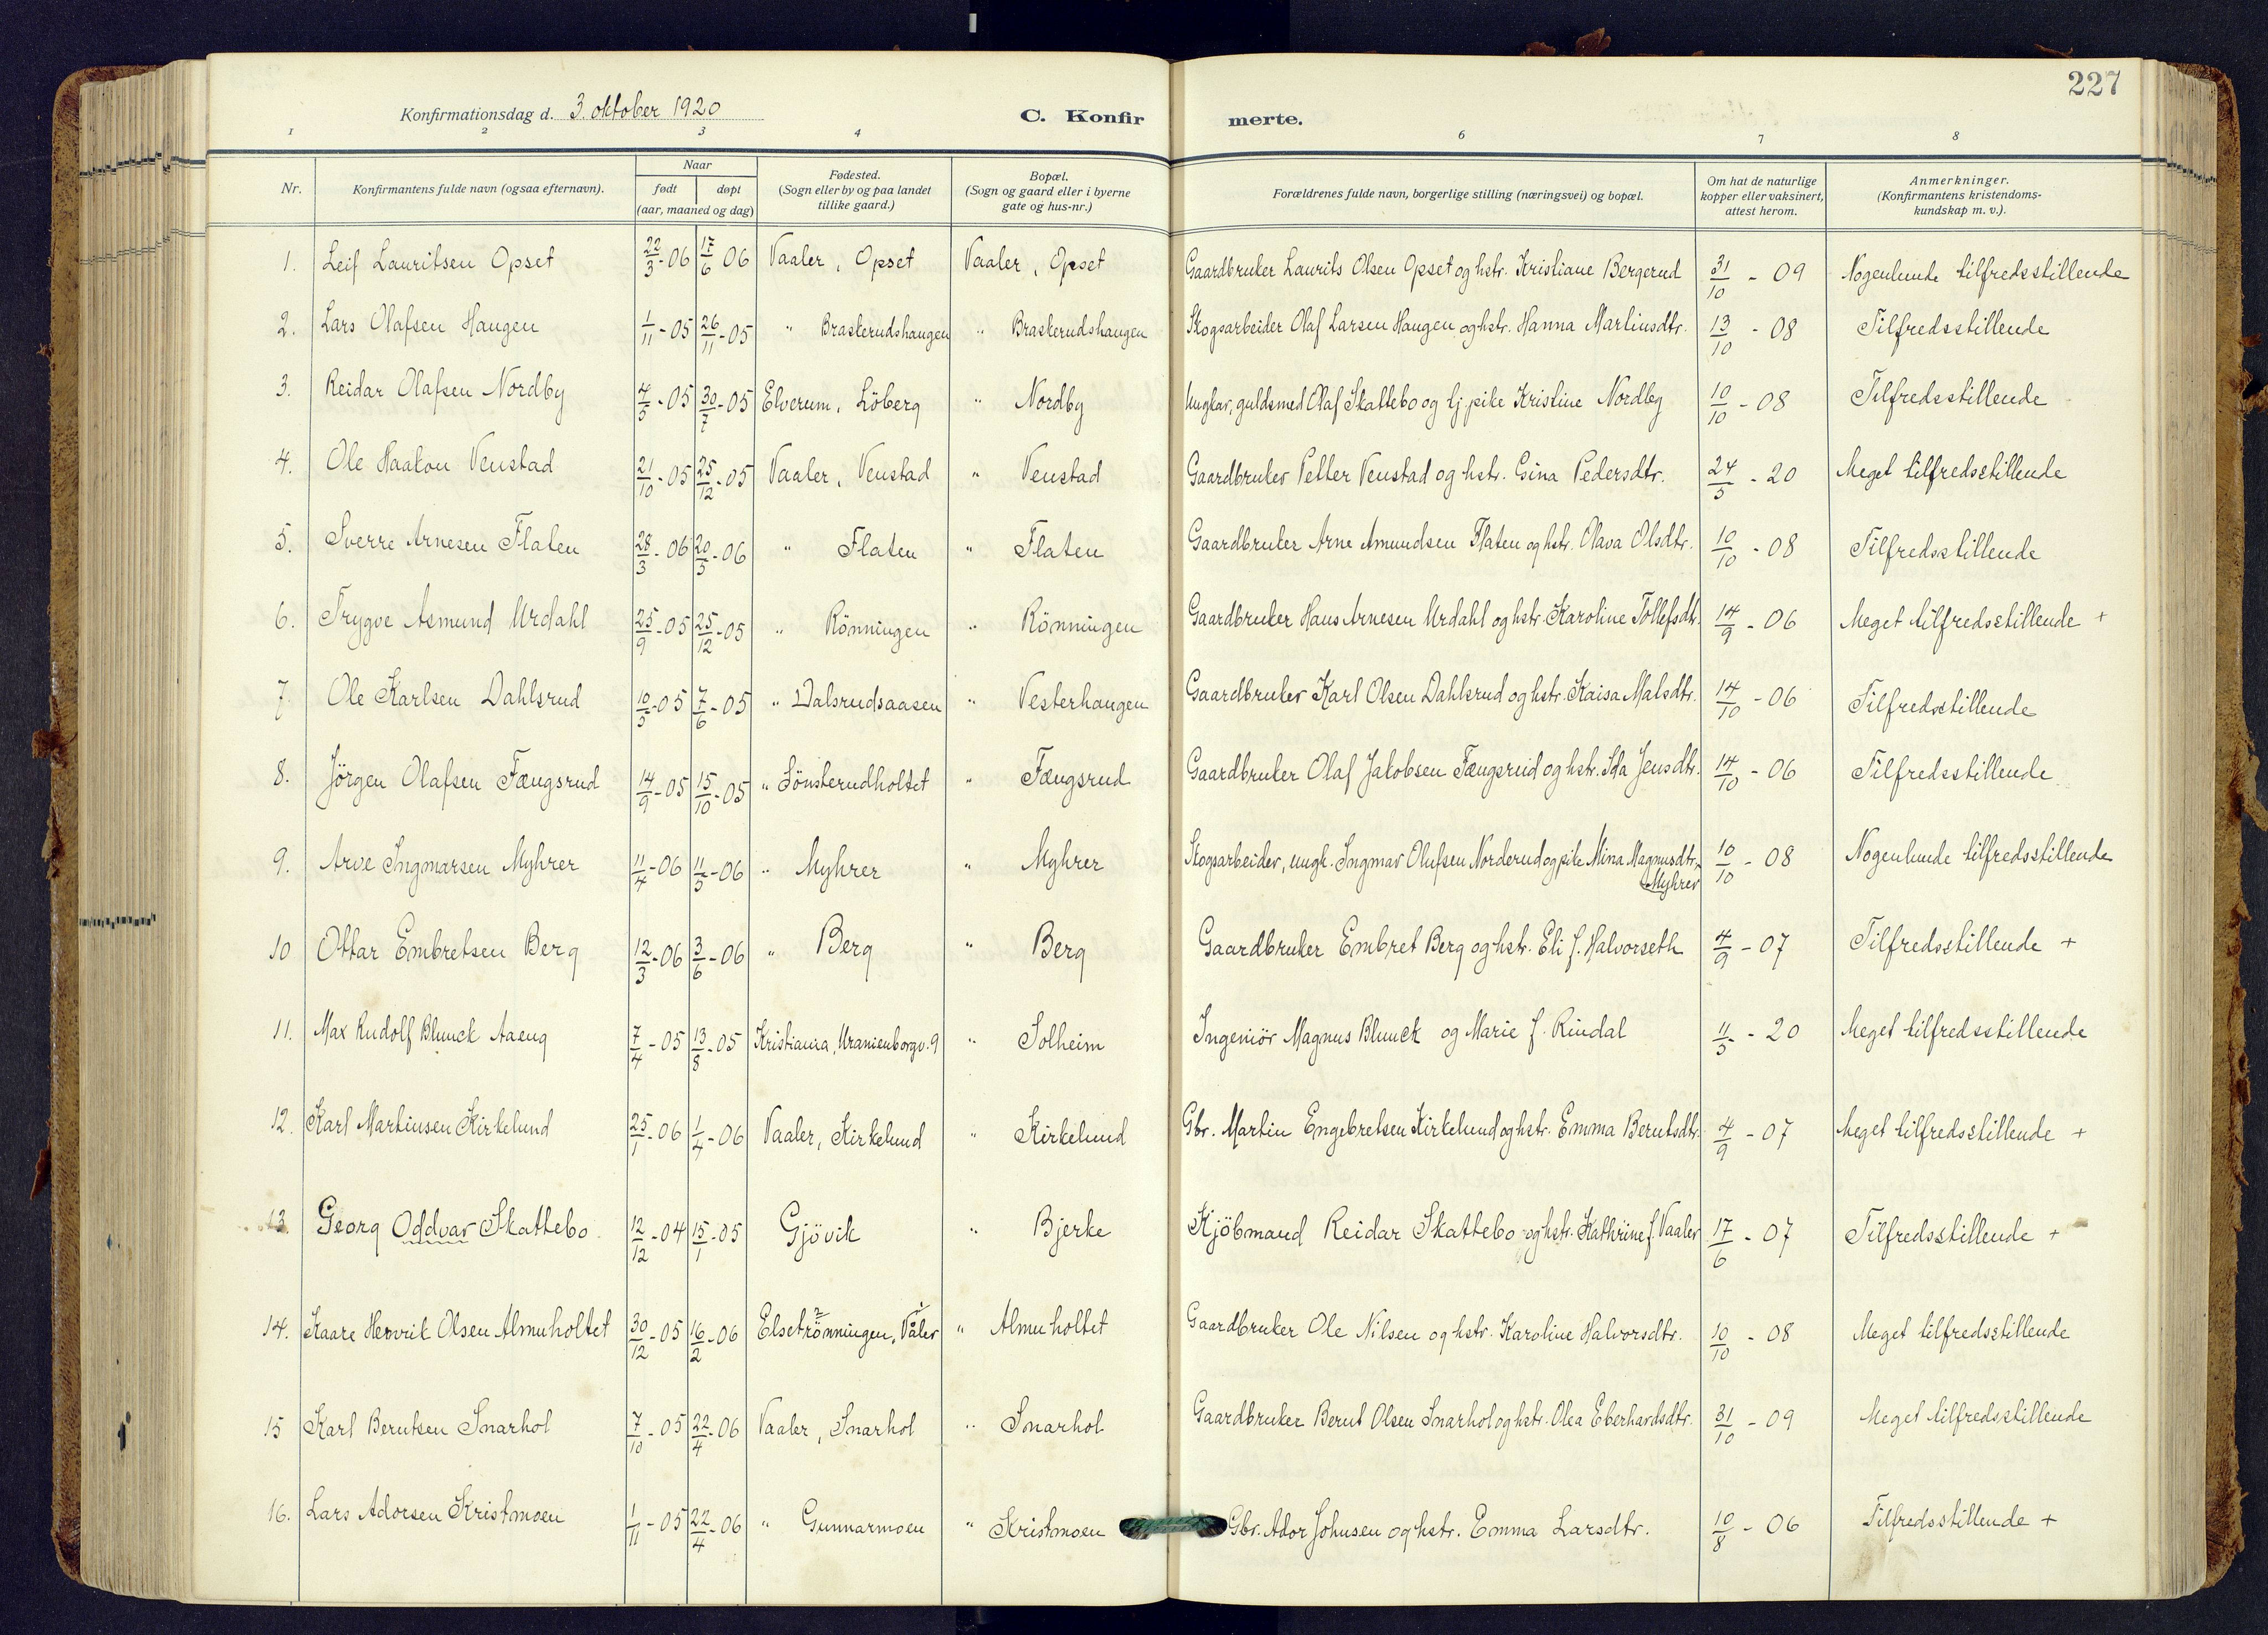 227
Konfirmationsdag d. 3. oktober 1920 C. Konfirmerte.
1 2 3 4 6 7 8
Nr. Konfirmantens fulde navn (ogsaa efternavn). Naar født døpt (aar, maaned og dag) Fødested. (Sogn eller by og paa landet tillike gaard.) Bopæl. (Sogn og gaard eller i byerne gate og hus-nr.) Forældrenes fulde navn, borgerlige stilling (næringsvei) og bopæl. Om hat de naturlige kopper eller vaksinert, attest herom. Anmerkninger. (Konfirmantens kristendoms-kundskap m. v.).
1. Leif Lauritsen Opset 22/3-06 17/6 06 Vaaler, Opset Vaaler, Opset Gaardbruker Laurits Olsen Opset og hstr. Kristiane Bergerud 31/10 - 09 Nogenlunde tilfredsstillende
2. Lars Olafsen Haugen 1/11-05 26/11-05 " Braskerudshaugen " Braskerudshaugen Skogsarbeider Olaf Larsen Haugen og hstr. Hanna Martinsdtr. 13/10 - 08 Tilfredsstillende
3. Reidar Olafsen Nordby 4/5-05 30/7-05 Elverum, Löberg " Nordby Ungkar, guldsmed Olaf Skattebo og tj. pike Kristine Nordby 10/10 - 08 Tilfredsstillende
4. Ole Haakon Venstad 21/10-05 25/12-05 Vaaler, Venstad " Venstad Gaardbruker Petter Venstad og hstr. Gina Pedersdtr. 24/5 - 20 Meget tilfredsstillende
5. Sverre Arnesen Flaten 28/3-06 20/5-06 " Flaten " Flaten Gaardbruker Arne Amundsen Flaten og hstr. Olava Olsdtr. 10/10 - 08 Tilfredsstillende
6. Trygve Asmund Urdahl 25/9-05 25/12-05 " Rönningen " Rönningen Gaardbruker Hans Arnesen Urdahl og hstr. Karoline Tollefsdtr. 14/9 - 06 Meget tilfredsstillende +
7. Ole Karlsen Dahlsrud 10/5-05 7/6-05 " Dalsrudsaasen " Vesterhaugen Gaardbruker Karl Olsen Dahlsrud og hstr. Kaisa Matsdtr. 14/10 - 06 Tilfredsstillende
8. Jörgen Olafsen Fængsrud 14/9-05 15/10-05 " Sönsterudholtet " Fængsrud Gaardbruker Olaf Jakobsen Fængsrud og hstr. Ida Jensdtr. 14/10 - 06 Tilfredsstillende
9. Arve Ingmarsen Myhrer 11/4-06 11/5-06 " Myhrer " Myhrer Skogsarbeider, ungk. Ingmar Olufsen Norderud og pike Mina Magnusdtr. Myhrer 10/10 - 08 Nogenlunde tilfredsstillende
10 Ottar Embretsen Berg 12/3-06 3/6-06 " Berg " Berg Gaardbruker Embret Berg og hstr. Eli f. Halvorseth 4/9 - 07 Tilfredsstillende +
11. Max Rudolf Blunck Aaeng 7/4-05 13/8-05 Kristiania, Uranienborgv. 9 " Solheim Ingeniör Magnus Blunck og Marie f. Rindal 11/5 - 20 Meget tilfredsstillende
12. Karl Martinsen Kirkelund 25/1-06 1/4-06 Vaaler, Kirkelund " Kirkelund Gbr. Martin Engebretsen Kirkelund og hstr. Emma Berntsdtr. 4/9 - 07 Meget tilfredsstillende +
13. Georg Oddvar Skattebo 12/12-04 15/1-05 Gjövik " Bjerke Kjöbmand Reidar Skattebo og hstr. Kathrine f. Vaaler 17/6 - 07 Tilfredsstillende +
14. Kaare Henrik Olsen Almuholtet 30/12-05 16/2-06 Elsetrönningen, Våler " Almuholtet Gaardbruker Ole Nilsen og hstr. Karoline Halvorsdtr. 10/10 - 08 Meget tilfredsstillende
15 Karl Berntsen Snarhol 7/10-05 22/4-06 Vaaler, Snarhol " Snarhol Gaardbruker Bernt Olsen Snarhol og hstr. Olea Eberhardsdtr. 31/10 - 09 Meget tilfredsstillende
16. Lars Adorsen Kristmoen 1/11-05 22/4-06 " Gunnarmoen " Kristmoen Gbr. Ador Johnsen og hstr. Emma Larsdtr. 10/8 - 06 Tilfredsstillende +